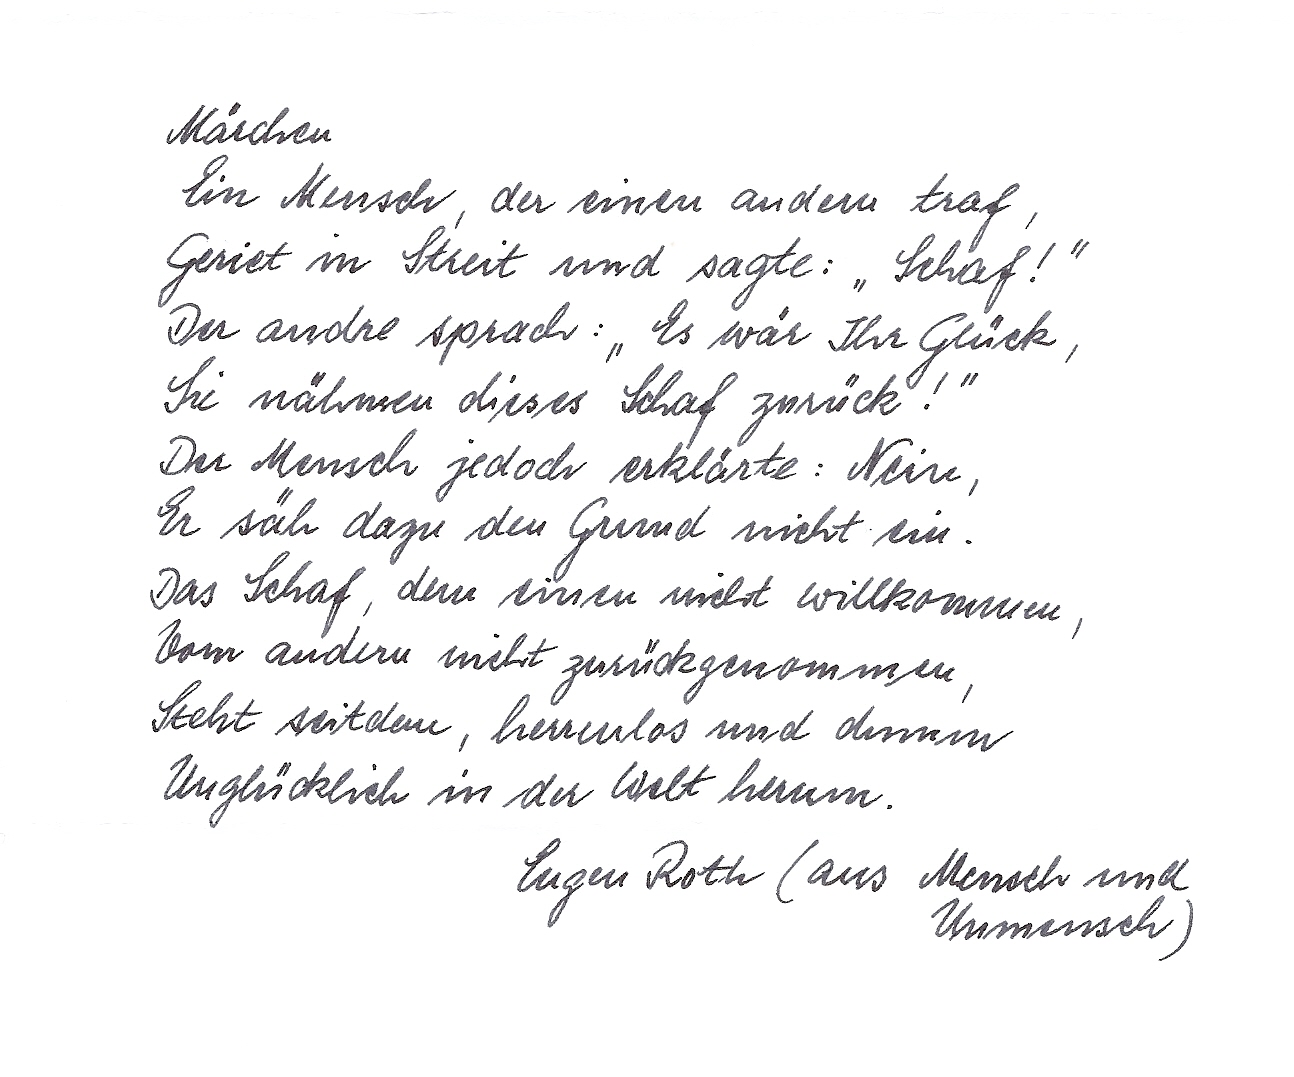 Märchen
Ein Mensch, der einen andern traf,
Geriet in Streit und sagte: „Schaf!"
Der andre sprach: „Es wär Ihr Glück,
Sie nähmen dieses Schaf zurück!"
Der Mensch jedoch erklärte: Nein,
Er säh dazu den Grund nicht ein.
Das Schaf, dem einen nicht willkommen,
Vom andern nicht zurückgenommen,
Steht seitdem, herrenlos und dumm
Unglücklich in der Welt herum.
Eugen Roth (aus Mensch und
Unmensch)